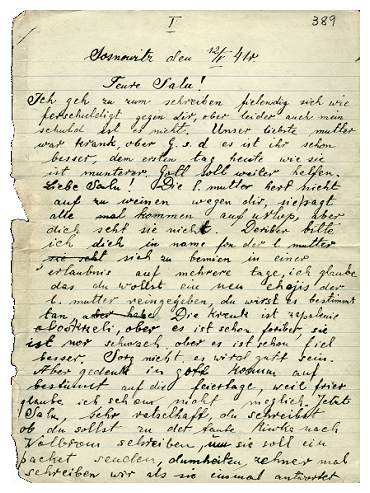 I
389
Sosnowitz den 12/V 41r.
Teure Sala!
Ich geh zu zum schreiben fielendig sich wie
ferschuldigt gegen dir, aber leider auch mein
schuld ist es nicht. Unser liebste mutter
war krank, ober G.s.d es ist ihr schon
besser, dem ersten tag heute wie sie
ist munterer. Gott soll weiter helfen.
Liebe Sala! Die l. mutter hert nicht
auf zu weinen wegen dir, sie sagt
alle mal kommen auf urlop, aber
dich seht sie nicht. Deriber bitte
ich dich in name fon der l. mutter
sie seht sich zu bemien in einer
erlaubnis auf mehrere tage, ich glaube
das du wollst ein neu chajis der
l. mutter reingegeben, du wirst es bestimmt
tan aber habe. Die krenkt ist zapalenie
ober es ist schon foriber, sie
ist nor schwach, ober es ist schon fiel
besser. Sorg nicht, es wird gutt sein.
Aber gedenk in gott komm auf
bestimmt auf die feiertage, weil frier
glaube ich schon nicht meglich. Jetzt
Sala, sehr ratselhaft, du schreibst
ob du sollst zu der tante nach
Wolbrom schreiben, um sie soll ein
packet senden, dumheiten, zehner mal
schreiben wir als sie einmal antwortet